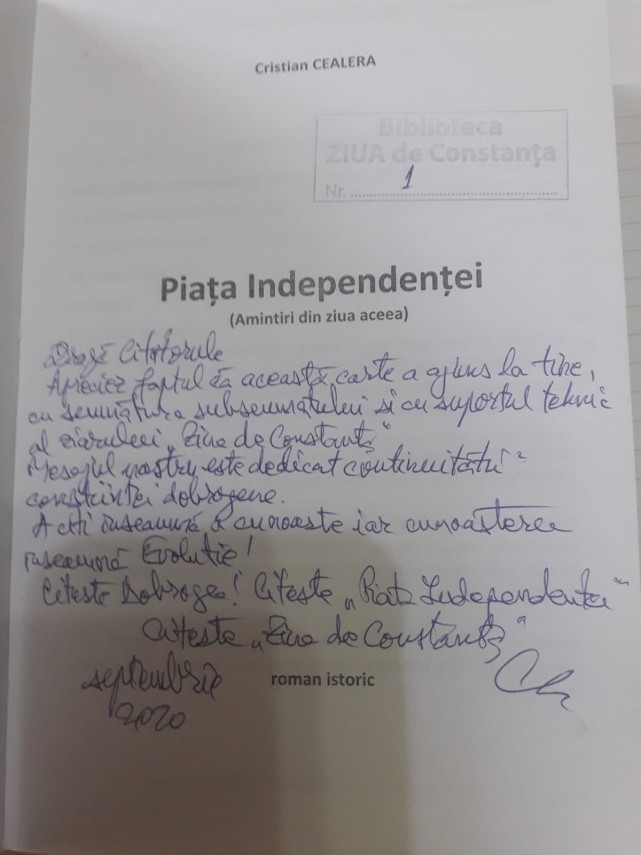 Cristian CEALERA
Biblioteca
ZIUA de Constanța
Nr. 1
Piața Independenței
(Amintiri din ziua aceea)
Dragă Cititorule
Apreciez faptul că această carte a ajuns la tine,
cu semnătura subsemnatului si cu suportul tehnic
al ziarului „Ziua de Constanță"
Mesajul nostru este dedicat continuității
conștiinței dobrogene.
A citi inseamnă a cunoaste iar cunoașterea
inseamnă Evolutie!
Citeste Dobrogea! Citeste „Piata Independentei"
Citeste „Ziua de Constanță"
septembrie
2020
roman istoric